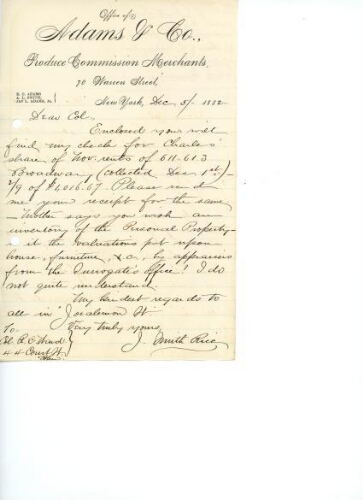 Office of
Adams & Co.,
Produce Commission Merchants,
70 Warren Street
New York, Dec 5/ 1882
Dear Col.
Enclosed you will
find my check for Charles'
share of Nov. rents of 611-613
Broadway (collected Dec 1st)-
2/9 of $4,016.67. Please send
me your receipt for the same
- Mother says you wish an
inventory of the Personal Property-
is it the valuations put upon
house, furniture, &c, by appraisers
from the Surrogate's Office? I do
not quite understand.
My kindest regards to
all in Joralemon St
Very truly yours,
J. Smith Rice
To
Col. R. C. Ward
44 Court St.